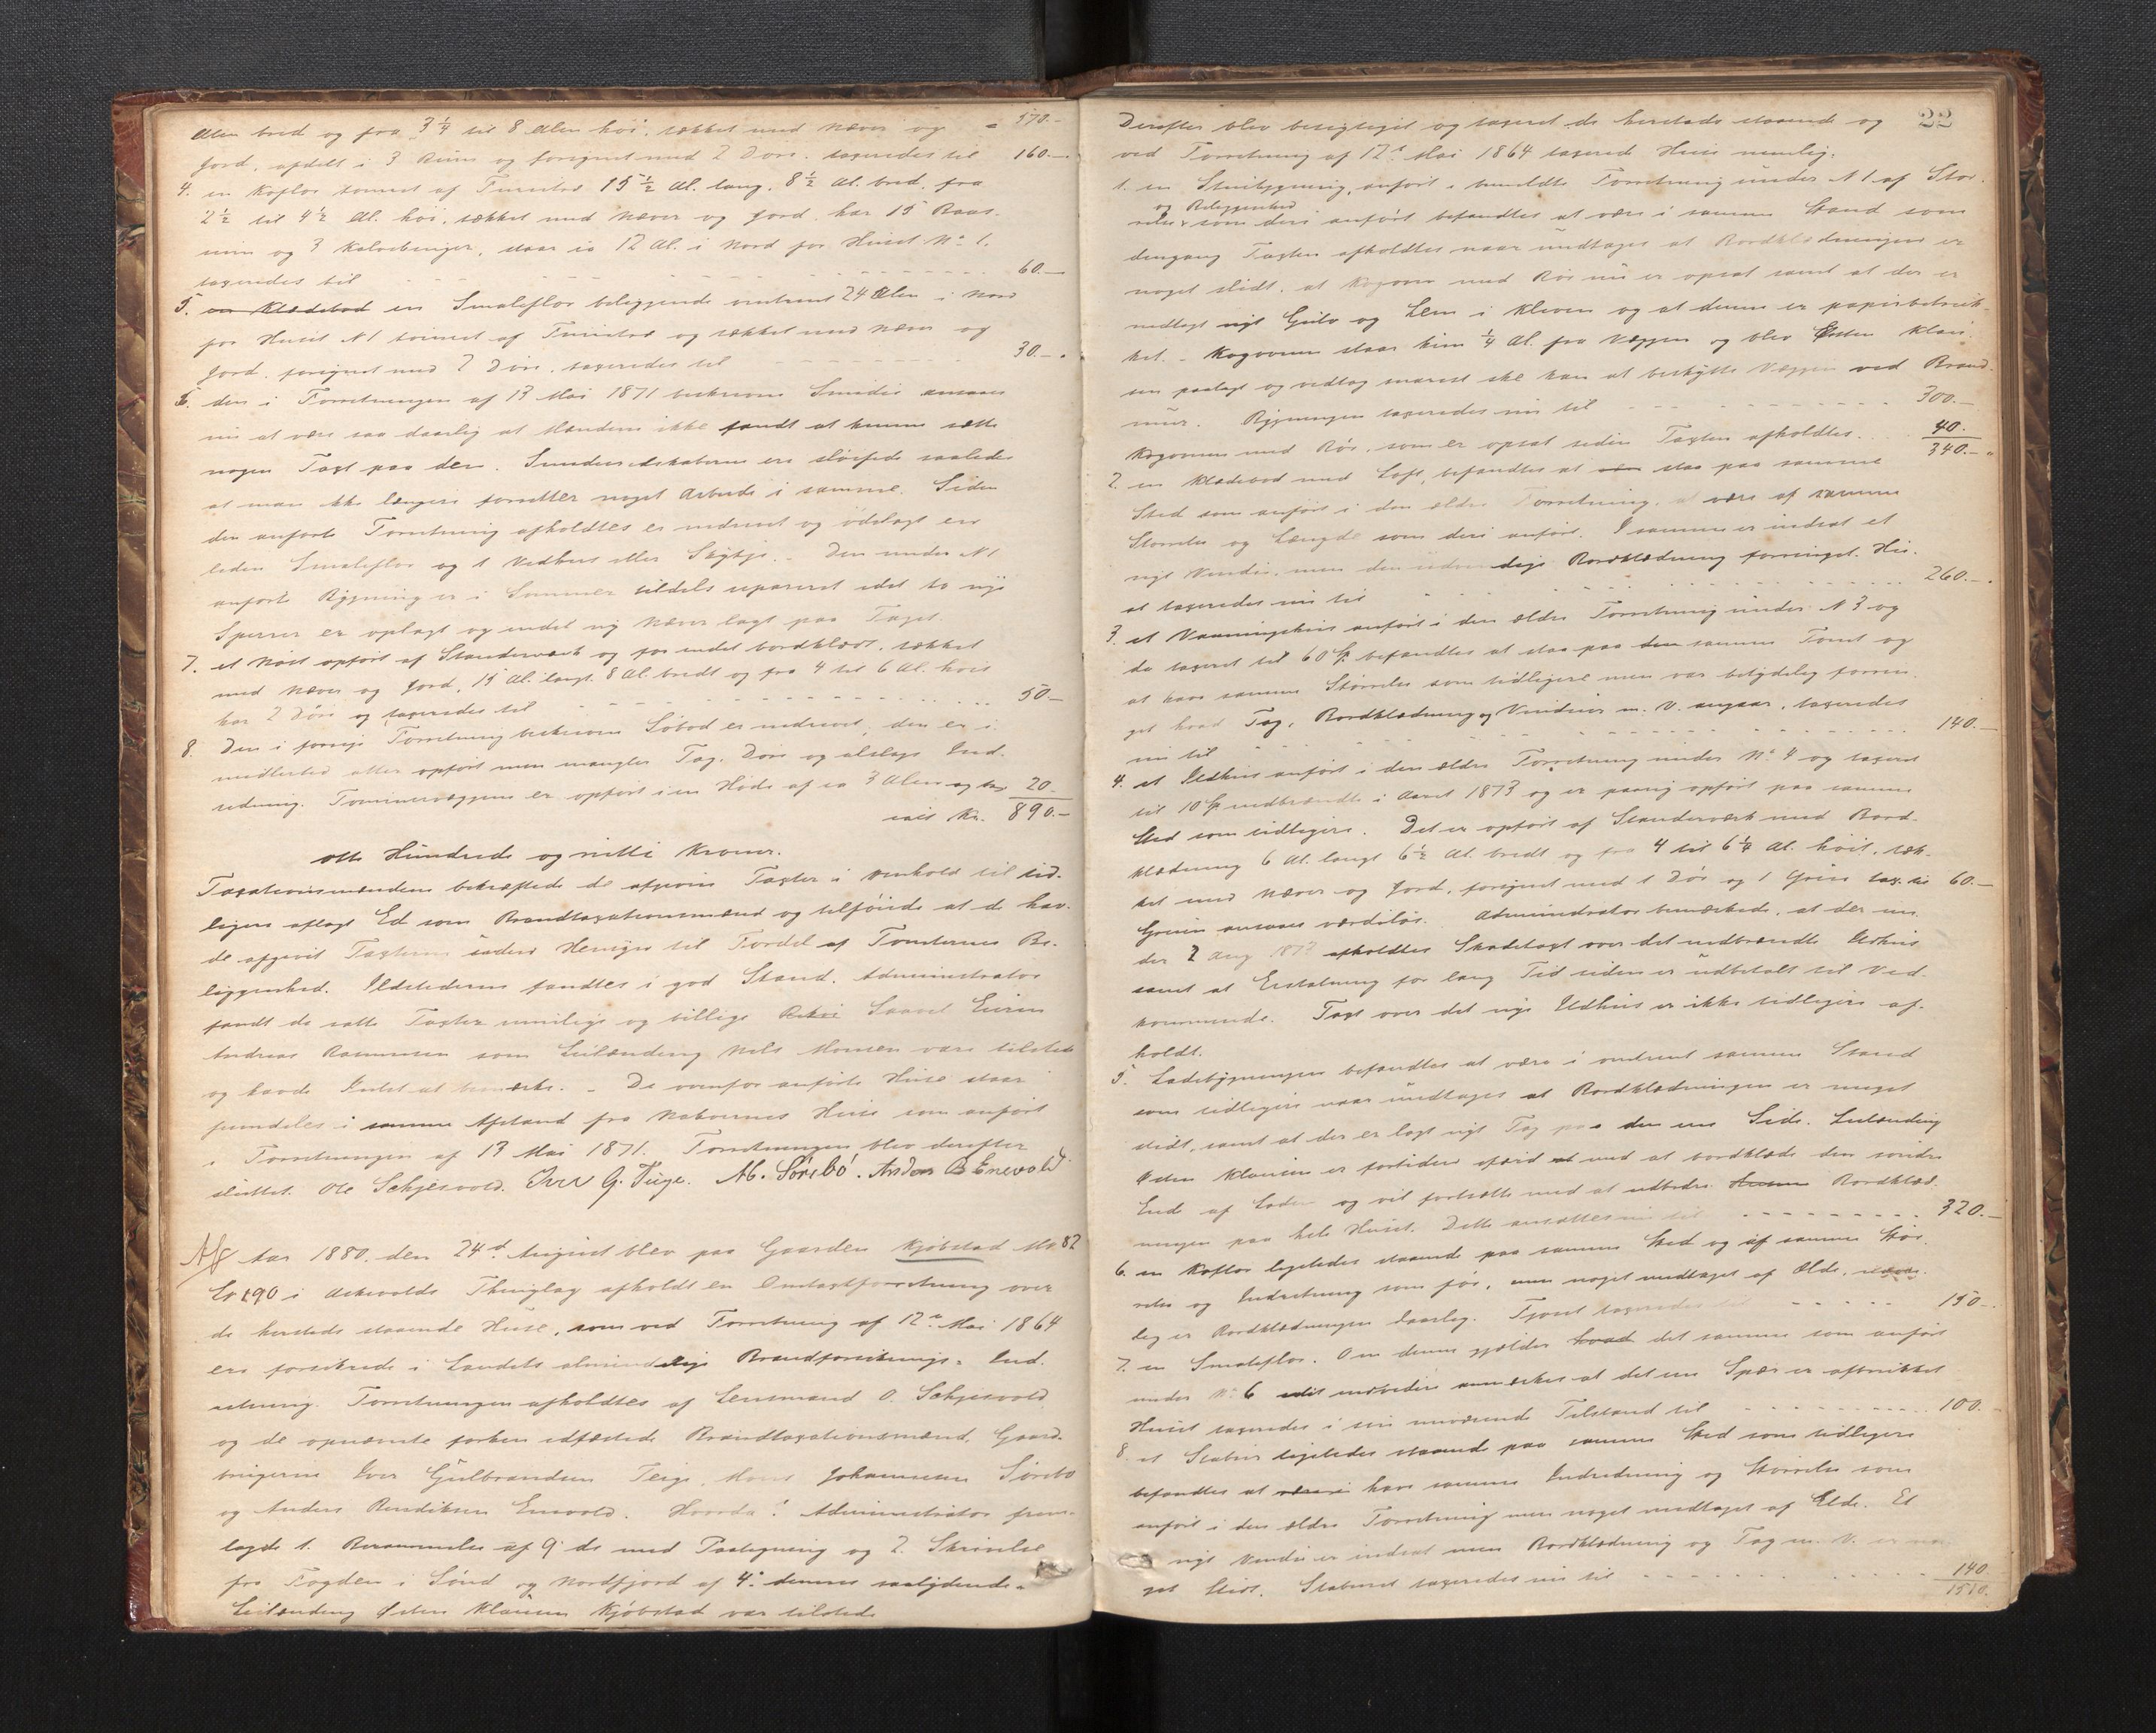 Alen bred og fra 3 1/4 til 8 Alen høi, tækket med Næver og " 570.-
Jord, afdelt i 3 Rum og forsynet med 2 Døre. taxeredes til 160.-
4. en Koflor tømret af Furutræ 15 1/2 Al. lang, 8 1/2 Al. bred, fra
2 1/2 til 4 1/2 Al. høi, tækket med Næver og Jord. har 15 Baas-
rum og 3 Kalvebinger, staar ca 12 Al. i Nord for Huset No 1.
taxeredes til 60.-
5. en Klædebod en Smaleflor beliggende omtrent 24 Alen i Nord
for Huset N 1 tømret af Furutræ og tækket med Næver og
Jord. forsynet med 2 Døre, taxeredes til 30.-
6. den i Forretningen af 13 Mai 1871 beskrevne Smidie ansaaes
nu at være saa daarlig at Mændene ikke fandt at kunne sætte
nogen Taxt paa den. Smideredskaberne ere sløifede saaledes
at man ikke længere forretter noget Arbeide i samme. Siden
den anførte Forretning afholdtes er nedrevet og ødelagt en
liden Smaleflor og 1 Vedhus eller Skykje. - Den under N 1
anførte Bygning er i Sommer tildels repareret idet to nye
Sperrer er oplagt og endel ny Næver lagt paa Taget.
7. et Nøst opført af Standerværk og for endel bordklædt, tækket
med Næver og Jord, 15 Al. langt 8 Al. bredt og fra 4 til 6 Al. høit
har 2 Døre og taxeredes til 50.-
8. Den i forrige Forretning beskrevne Søbod er nedrevet, den er i-
midlertid atter opført men mangler Tag, Døre og alslags Ind-
redning. Tømmervæggene er opført i en Høide af ca 3 Alen og tax 20.-
ialt Kr. 890.-
otte Hundrede og nitti Kroner.
Taxationsmændene bekræftede de afgivne Taxter i Henhold til tid-
ligere aflagt Ed som Brandtaxationsmænd og tilføiede at de hav-
de afgivet Taxterne uden Hensyn til Fordel af Tomternes Be-
liggenhed. Ildstederne fandtes i god Stand. Administrator
fandt de satte Taxter rimelige og billige Saavel Eieren
Andreas Rasmussen som Leilænding Nils Monsen vare tilstede
og havde Intet at bemærke. - De ovenfor anførte Huse staar
fremdeles i samme Afstand fra Naboernes Huse som anført
i Forretningen af 13 Mai 1871. Forretningen blev derefter
sluttet. Ole Schjesvold. Iver G. Teige. M. Sørebø. Anders B Enevold
Aar 1880. den 24d August blev paa Gaarden Kjøbstad M.N. 82
L 190 i Askevolds Thinglag afholdt en Omtaxtforretning over
de hersteds staaende Huse, som ved Forretning af 12te Mai 1864
ere forsikrede i Landets almindelige Brandforsikrings-Ind-
retning. Forretningen afholdtes af Lensmand O. Schjesvold
og de opnævnte forhen edfæstede Brandtaxationsmænd, Gaard-
brugerne Iver Gulbrandsen Teige, Mons Johannesen Sørebø
og Anders Bendiksen Enevold. Hvorda: Administrator frem-
lagde 1. Berammelse af 9 ds med Paategning og 2. Skrivelse
fra Fogden i Sønd og Nordfjord af 4de dennes saalydende.
Leilænding Østen Klausen Kjøbstad var tilstede
22
Derefter blev besigtiget og taxeret de hersteds staaende og
ved Forretning af 12te Mai 1864 taxerede Huse nemlig.
1. en Stuebygning, anført i bemeldte Forretning under N 1 af Stør-
og Beliggenhed
relse som deri anført befandtes at være i samme Stand som
dengang Taxten afholdtes naar undtages at Bordklædningen er
noget slidt, at Kogovn med Rør nu er opsat samt at der er
nedlagt nyt Gulv og Lem i Kleven og at denne er papirbetræk-
ket. - Kogovnen staar kun 1/4 Al. fra Væggen og blev Østen Klau-
sen paalagt og vedtog snarest ske kan at beskytte Væggen ved Brand-
mur. Bygningen taxeredes nu til 300.-
Kogovnen med Rør, som er opsat siden Taxten afholdtes. 40.
340.-
2. en Klædebod med Loft, befandtes at staa paa samme
Sted som anført i den ældre Forretning, at være af samme
Størrelse og Længde som deri anført. I samme er indsat et
nyt Vindu, men den udvendige Bordklædning forringet. Hu-
et taxeredes nu til 260.-
3. et Vaaningshus anført i den ældre Forretning under N 3 og
da taxeret til 60 Sp. befandtes at staa paa den samme Tomt og
at have samme Størrelse som tidligere men var betydelig forrin-
get hvad Tag, Bordklædning og Vinduer m. V. angaar, taxeredes
nu til 140.-
4. et Ildhus anført i den ældre Forretning under No 4 og taxeret
til 10 Sp nedbrændte i Aaret 1873 og er paany opført paa samme
Sted som tidligere. Det er opført af Standerværk med Bord-
klædning 6 Al. langt 6 1/2 Al. bredt og fra 4 til 6 1/4 Al. høit, tæk-
ket med Næver og Jord, forsynet med 1 Dør og 1 Grue tax. til 60.-
Gruen ansaaes værdiløs. Administrator bemærkede, at der un-
der 2 Aug 1873 afholdtes Skadetaxt over det nedbrændte Ildhus
samt at Erstatning for lang Tid siden er udbetalt til Ved-
kommende. Taxt over det nye Ildhus er ikke tidligere af-
holdt.
5. Ladebygningen befandtes at være i omtrent samme Stand
som tidligere naar undtages at Bordklædningen er meget
slidt, samt at der er lagt nyt Tag paa den ene Side. Leilænding
Østen Klausen er fortiden ifærd med at bordklæde den søndre
Ende af Laden og vil fortsætte med at udbedre Bordklæd-
ningen paa hele Huset. Dette ansattes nu til 320.-
6. en Koflor ligeledes staaende paa samme Sted og af samme Stør-
relse og Indretning som før, men noget medtaget af Ælde,
lig er Bordklædningen daarlig. Fjøset taxeredes til 150.-
7. en Smaleflor. Om denne gjælder hvad det samme som anført
under No 6 idet endvidere anmærkes at det ene Spær er afbrækket
Huset taxeredes i sin nuværende Tilstand til 100.-
8. et Stabur ligeledes staaende paa samme Sted som tidligere
befandtes at have samme Indredning og Størrelse som
anført i den ældre Forretning men noget medtaget af Elde. Et
nyt Vindu er indsat men Bordklædning og Tag m. V. er no-
get slidt. Staburet taxeredes nu til 140.
1510.